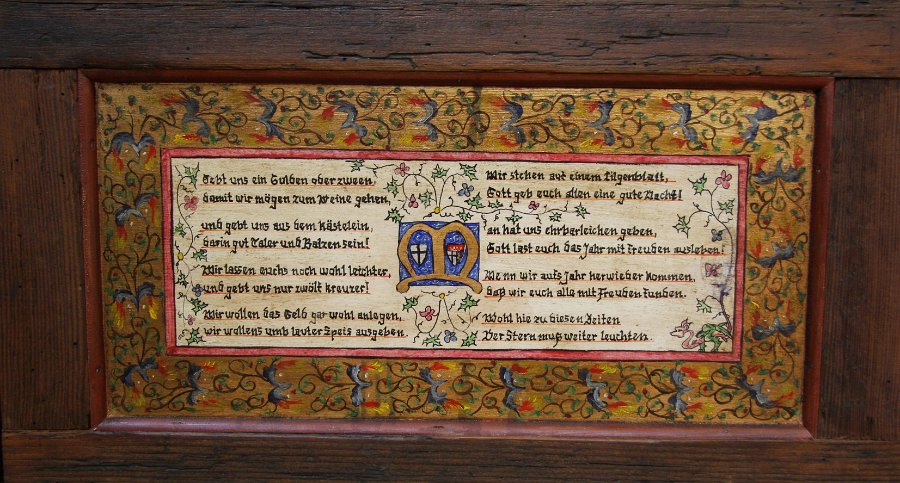 Gebt uns ein Gulden oder zween,
damit wir mögen zum Weine gehen,
und gebt uns aus dem Kästelein,
darin gut Taler und Batzen sein!
Wir lassen euchs noch wohl leichter,
und gebt uns nur zwölf Kreuzer!
Wir wollen das Geld gar wohl anlegen,
wir wollens umb lauter Speis ausgeben.
Wir stehen auf einem Lilgenblatt,
Gott geb euch allen eine gute Nacht!
an hat uns ehrbarleichen geben,
Gott last euch das Jahr mit Freuden ausleben.
Wenn wir aufs Jahr herwieder kommen,
daß wir euch alle mit Freuden funden.
Wohl hie zu diesen Zeiten
Der Stern muß weiter leuchten.
M